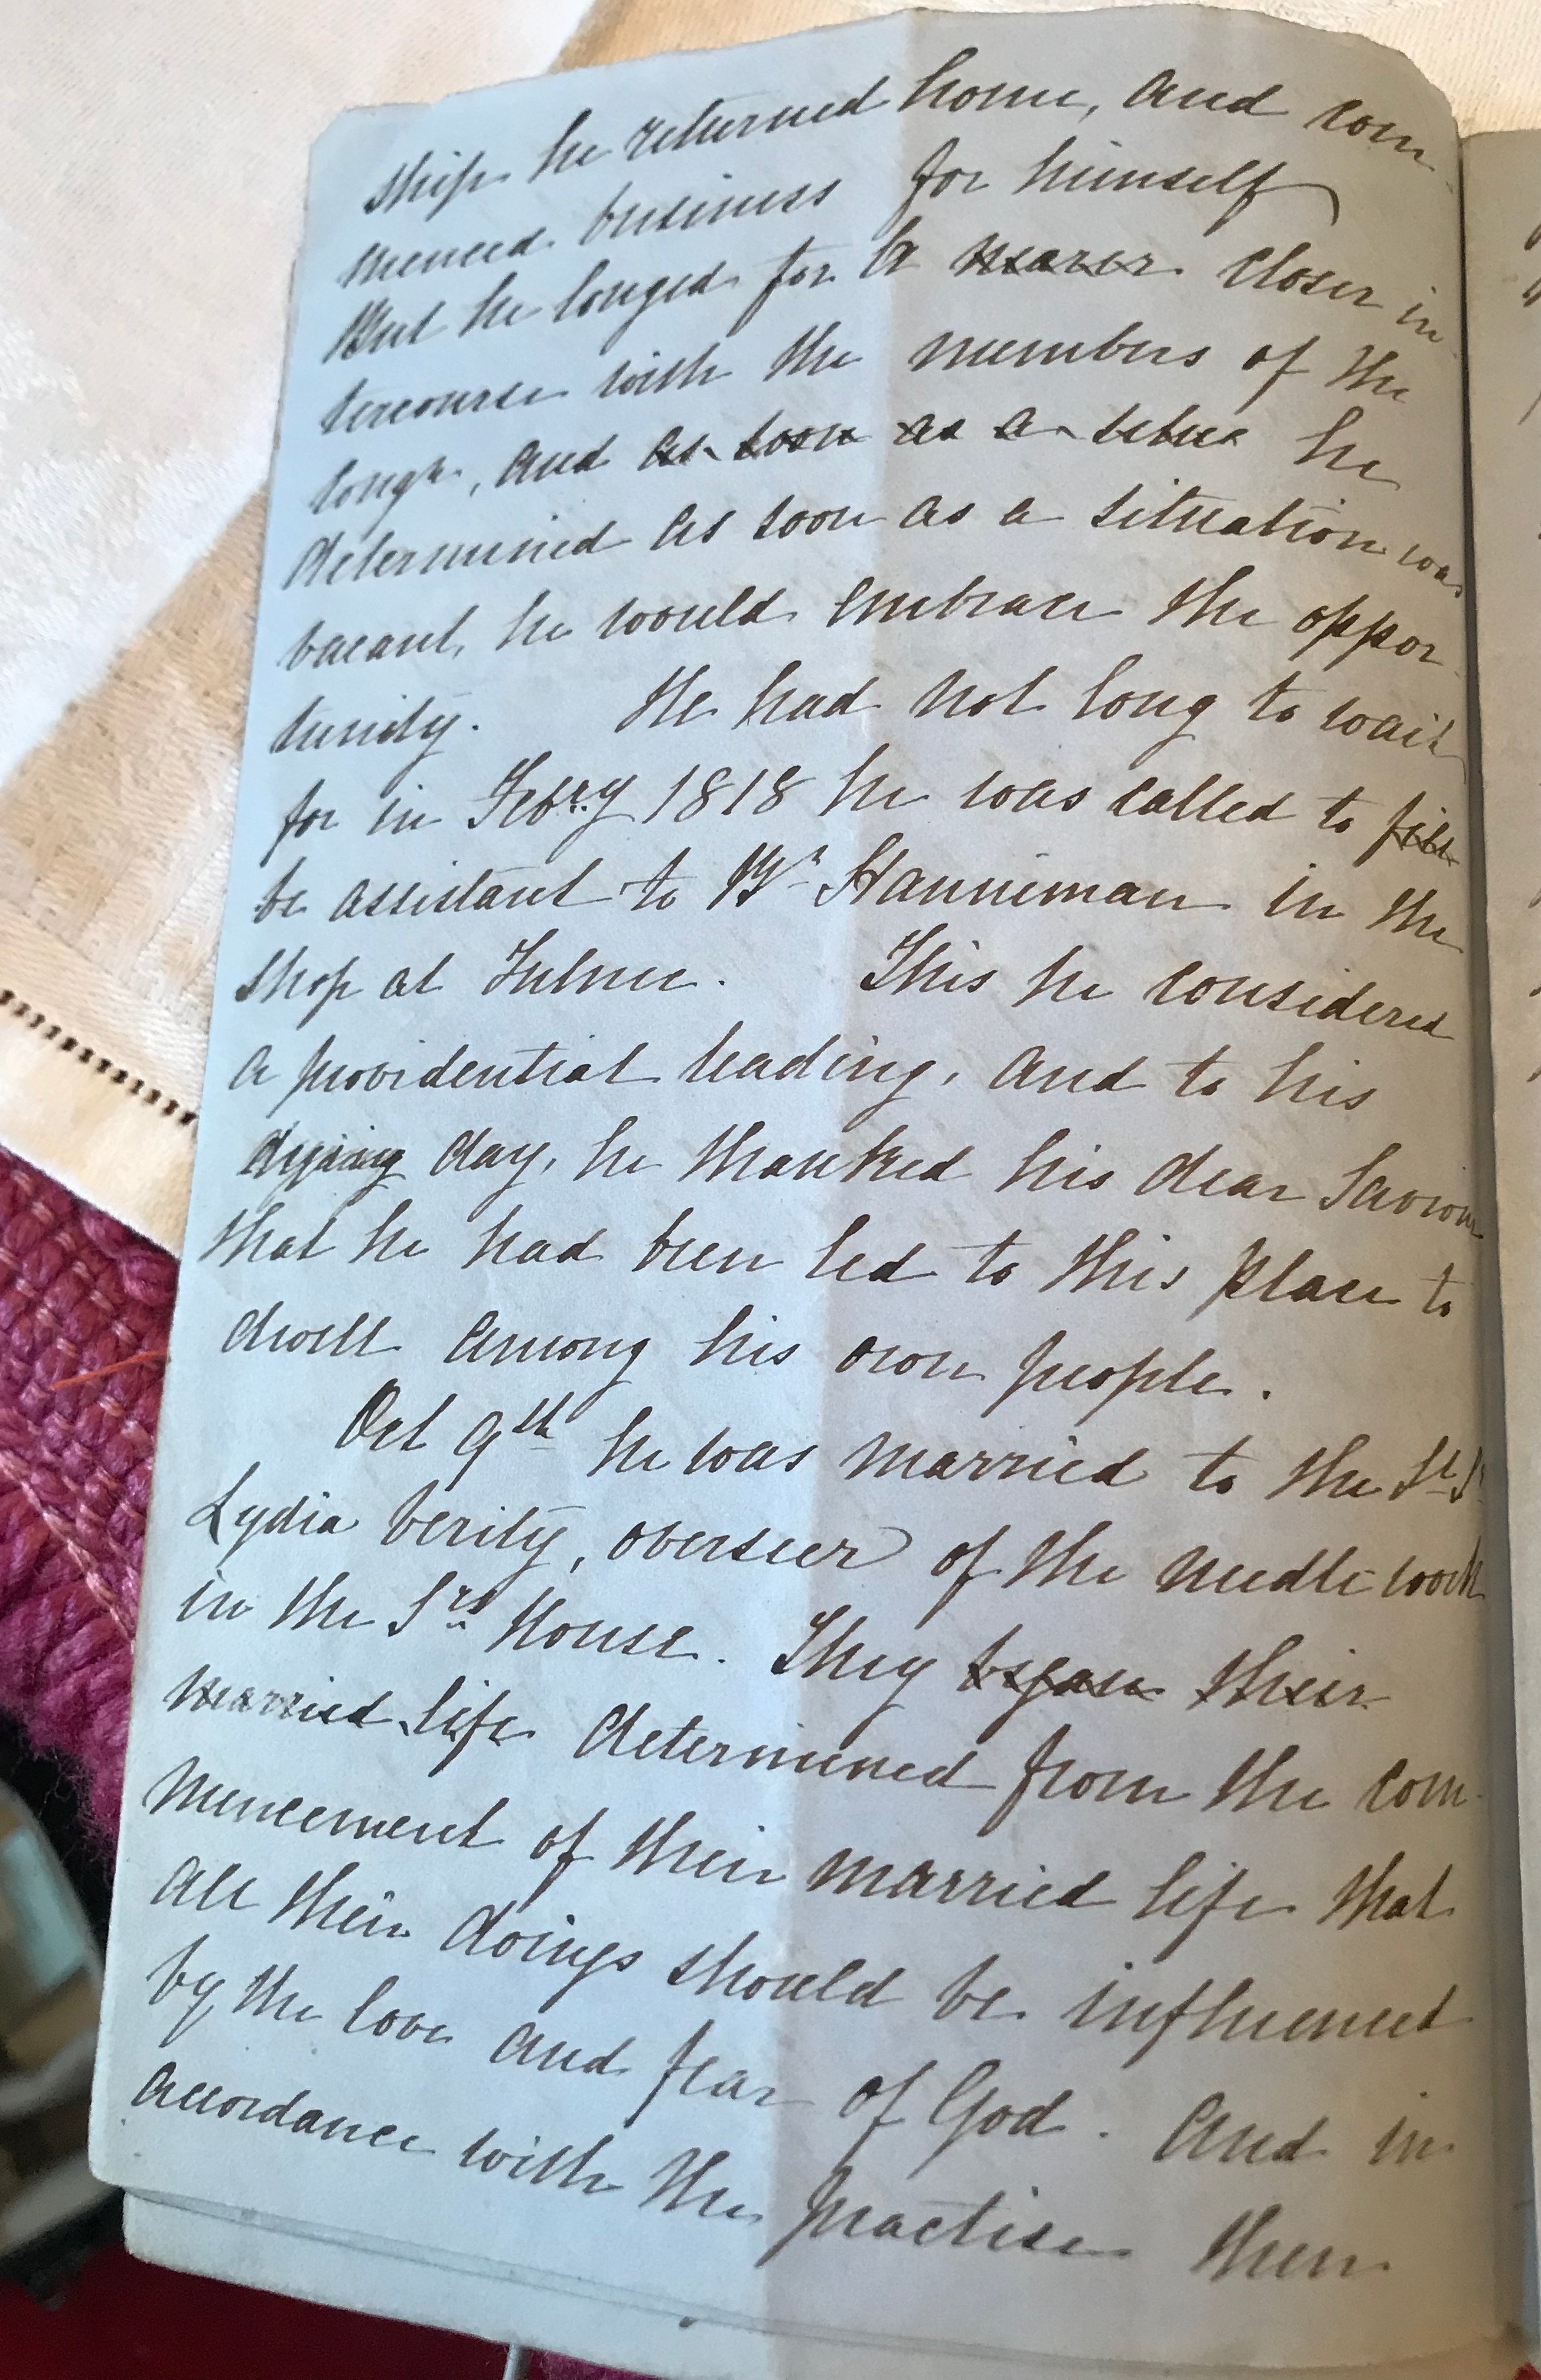 ship he returned home, and com-
menced business for himself
But he longed for a nearer closer in-
tercourse with the members of the
congn, and as soon as a situa he
determined as soon as a situation was
vacant, he would embrace the oppor
tunity. He had not long to wait
for in Febry 1818 he was called to fill
be assistant to Br Hanneman in the
shop at Fulnec. This he considered
a providential leading, and to his
dying day, he thanked his dear Saviour
that he had been led to this place to
dwell among his own people.
Oct 9th he was married to the
Lydia Verity, overseer of the needle work
in the Srs House. They began their
married life determined from the com-
mencement of their married life that
all their doings should be influenced
by the love and fear of God. And in
accordance with the practise then